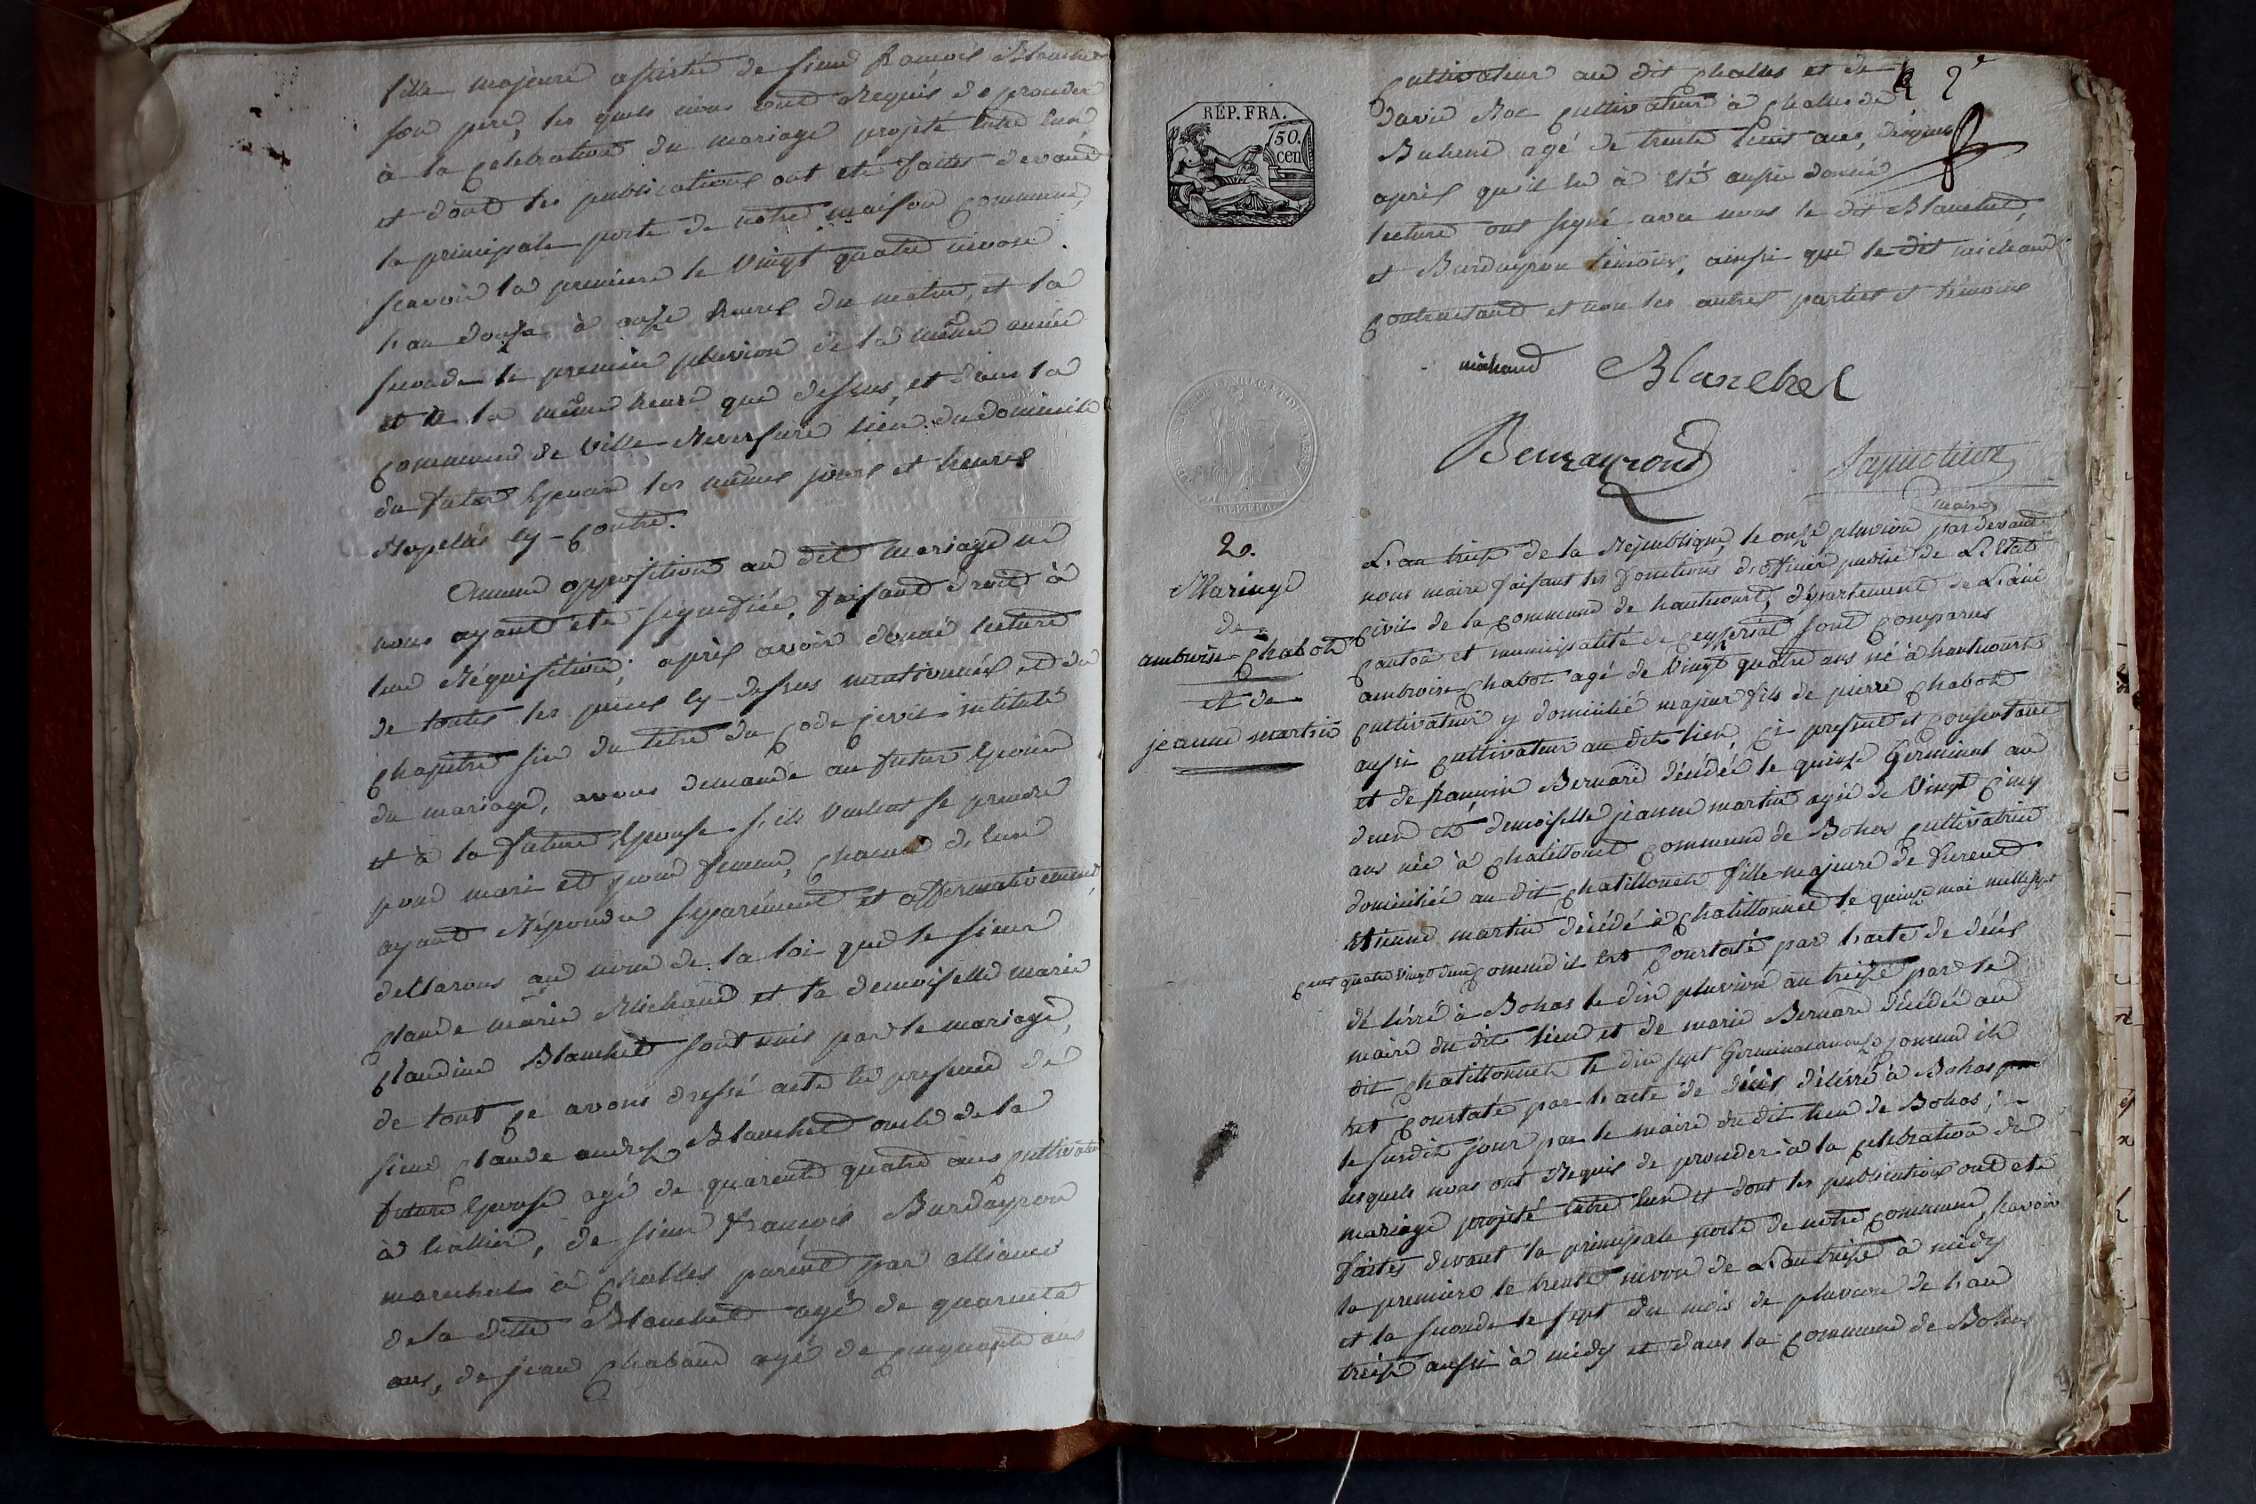 fille majeure assistée de sieur francois Blanchet
son pere, les quels nous ont Requis de proceder
à la Celebration du mariage projeté entre eux
et dont les publications ont été faites devant
la principale porte de notre maison Commune,
scavoir la premiere le Vingt quatre nivose
l'an douze à onze heures du matin, et la
seconde le premier pluviose de la même année
et de la même heure que dessus, et dans la
Commune de Ville Reversure lieu du domicile
du futur Epoux les mêmes jours et heures
Rapellés cy-contre.
Aucune opposition au dit mariage ne
nous ayant été signifiée, faisant droit à
leur Réquisition; après avoir donné lecture
de toutes les pieces cy-dessus mentionnées et du
Chapitre six du titre du Code Civil intitulé
du mariage, avons demandé au futur Epoux
et à la future Epouse s'ils veulent se prendre
pour mari et pour femme, chacun d'eux
ayant Répondu séparément et affirmativement,
declarons au nom de la loi que le sieur
Claude marie Michaud et la demoiselle marie
Claudine Blanchet sont unis par le mariage,
de tout ce avons dressé acte en presence de
sieur Claude Blanchet oncle de la
future Epouse agé de quarente quatre ans cultivateur
à , de sieur françois Burdayron
marechal à Challes parent par alliance
de la ditte Blanchet agé de quarente
ans, de jean Chaband agé de cinquante ans
RÉP. FRA.
50. cen
REP. FRA.
2e
Cultivateur au dit Challes et de
David Roc Cultivateur à Challes de
agé de trente huit ans,
après qu'il en a été aussi donné
lecture ont signé avec nous le dit Blanchet,
et Burdayron temoins, ainsi que le dit michaud
Contractant et non les autres parties et témoins
michaud Blanchet
maire
2.
Mariage
de
ambroise Chabot
et de
jeanne martin
L'an treize de la République, le onze pluviose pardevant
nous maire faisant les fonctions d'officier public de L'Etat
Civil de la Commune de hautecourt, département de L'ain
Canton et municipalité de Ceyseriat sont Comparus
ambroise Chabot agé de Vingt quatre ans né à hautecourt
Cultivateur y domicilié majeur fils de pierre Chabot
aussi Cultivateur au dit lieu, ci present et Consentant
et de françoise Bernard décédée le quinze Germinal an
deux et demoiselle jeanne martin agée de Vingt Cinq
ans née à Chatillonet Commune de Bohas Cultivatrice
domiciliée au dit Chatillonet fille majeure de
Etienne martin décédé à Chatillonnet le quinze mai mille sept
Cent quatre Vingt Comme il est Constaté par l'acte de décès
délivré à Bohas le dix pluviose an treize par le
maire du dit lieu et de marie Bernard décédée au
dit Chatillonnet le dix sept Germinal an onze Comme il
est Constaté par l'acte de décès délivré à Bohas
le susdit jour par le maire du dit lieu de Bohas;
lesquels nous ont Requis de proceder à la Celebration du
mariage projeté entre eux et dont les publications ont été
faites devant la principale porte de notre Commune, scavoir
la premiere le trente nivose de L'an treize à midy
et la seconde le sept du mois de pluviose de l'an
treize aussi à midy et dans la Commune de Bohas